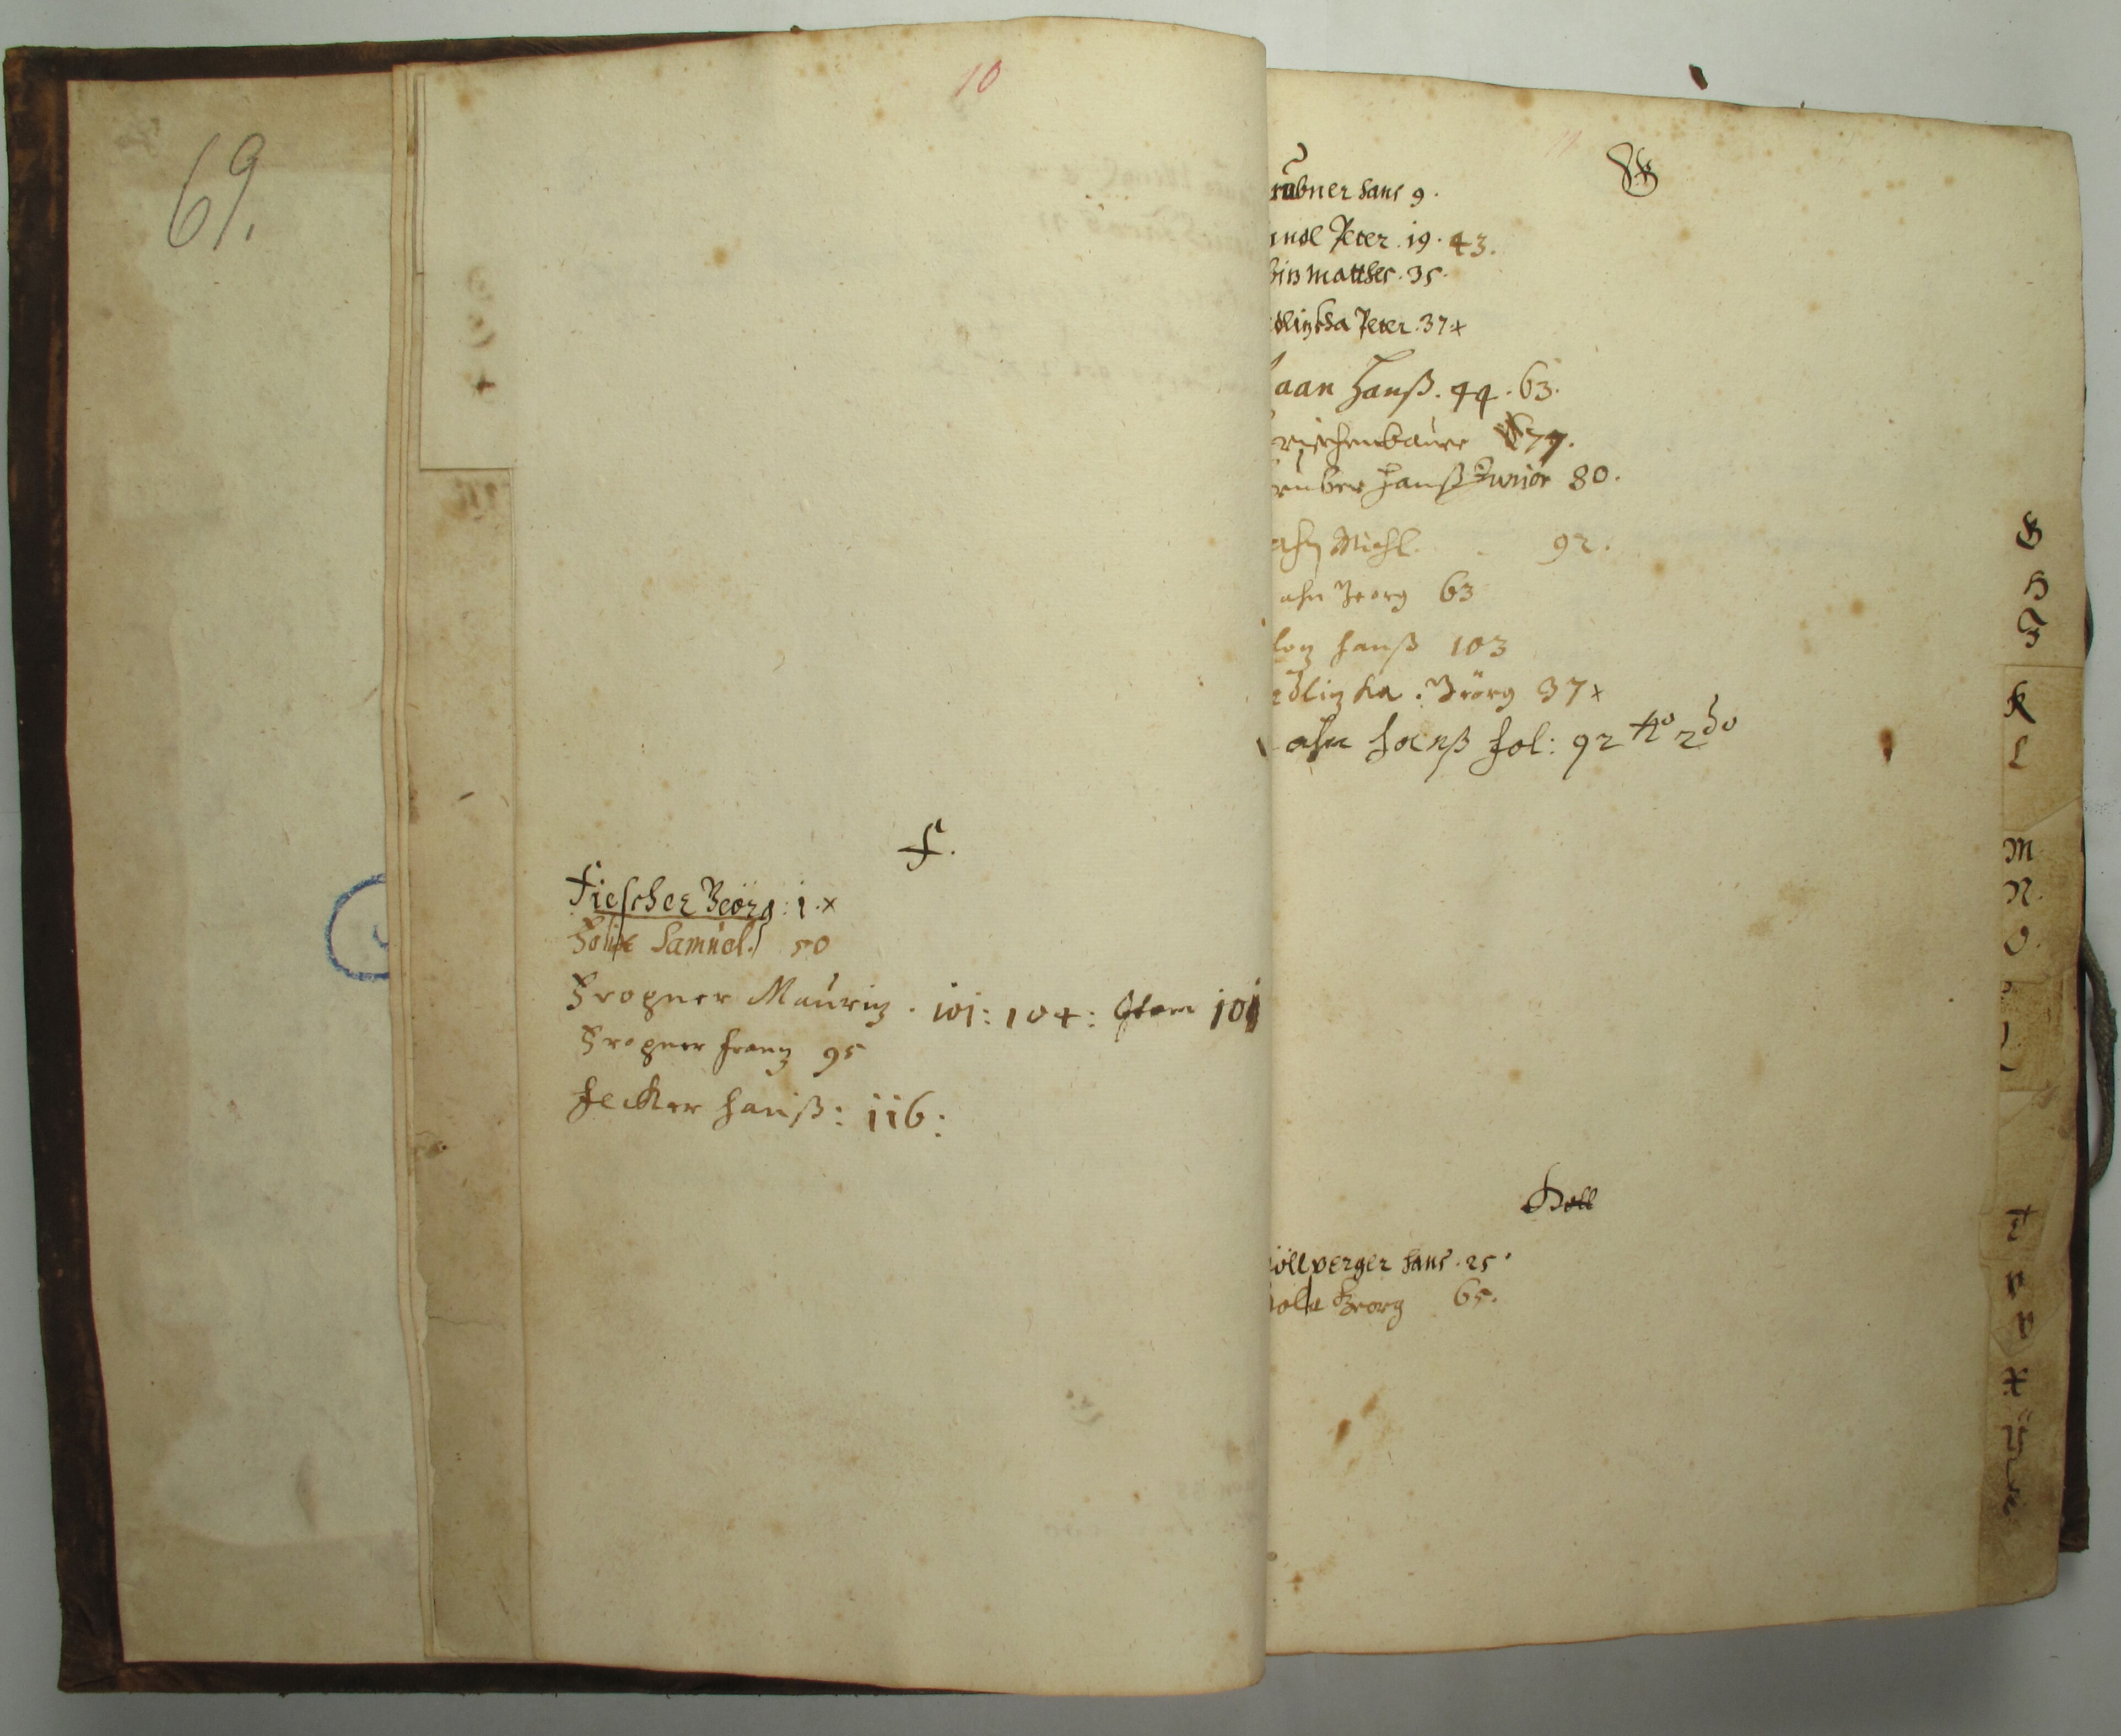 69.
10
f.
Fiescher Georg: 1. x
Samuel. 50
Frogner Mauritz . 101: 104: Item 101
Frogner Frantz 95
Fecker Hanß: 116:
G
rübner Hans 9.
andl Peter . 19. 43.
Matthes . 35.
dlizkha Peter . 37. x
aan Hanß . 44. 63.
riechenbauer 77.
ruber Hanß Junior 80.
ahn Michl. 92.
ahn Georg 63
lotz Hanß 103
edlizka . Georg 37 x
ahn Hanß fol: 92 No 2do
H
öllperger Hans . 25.
Georg 65.
G
H
I
K
L
M
N.
O.
T
V
X